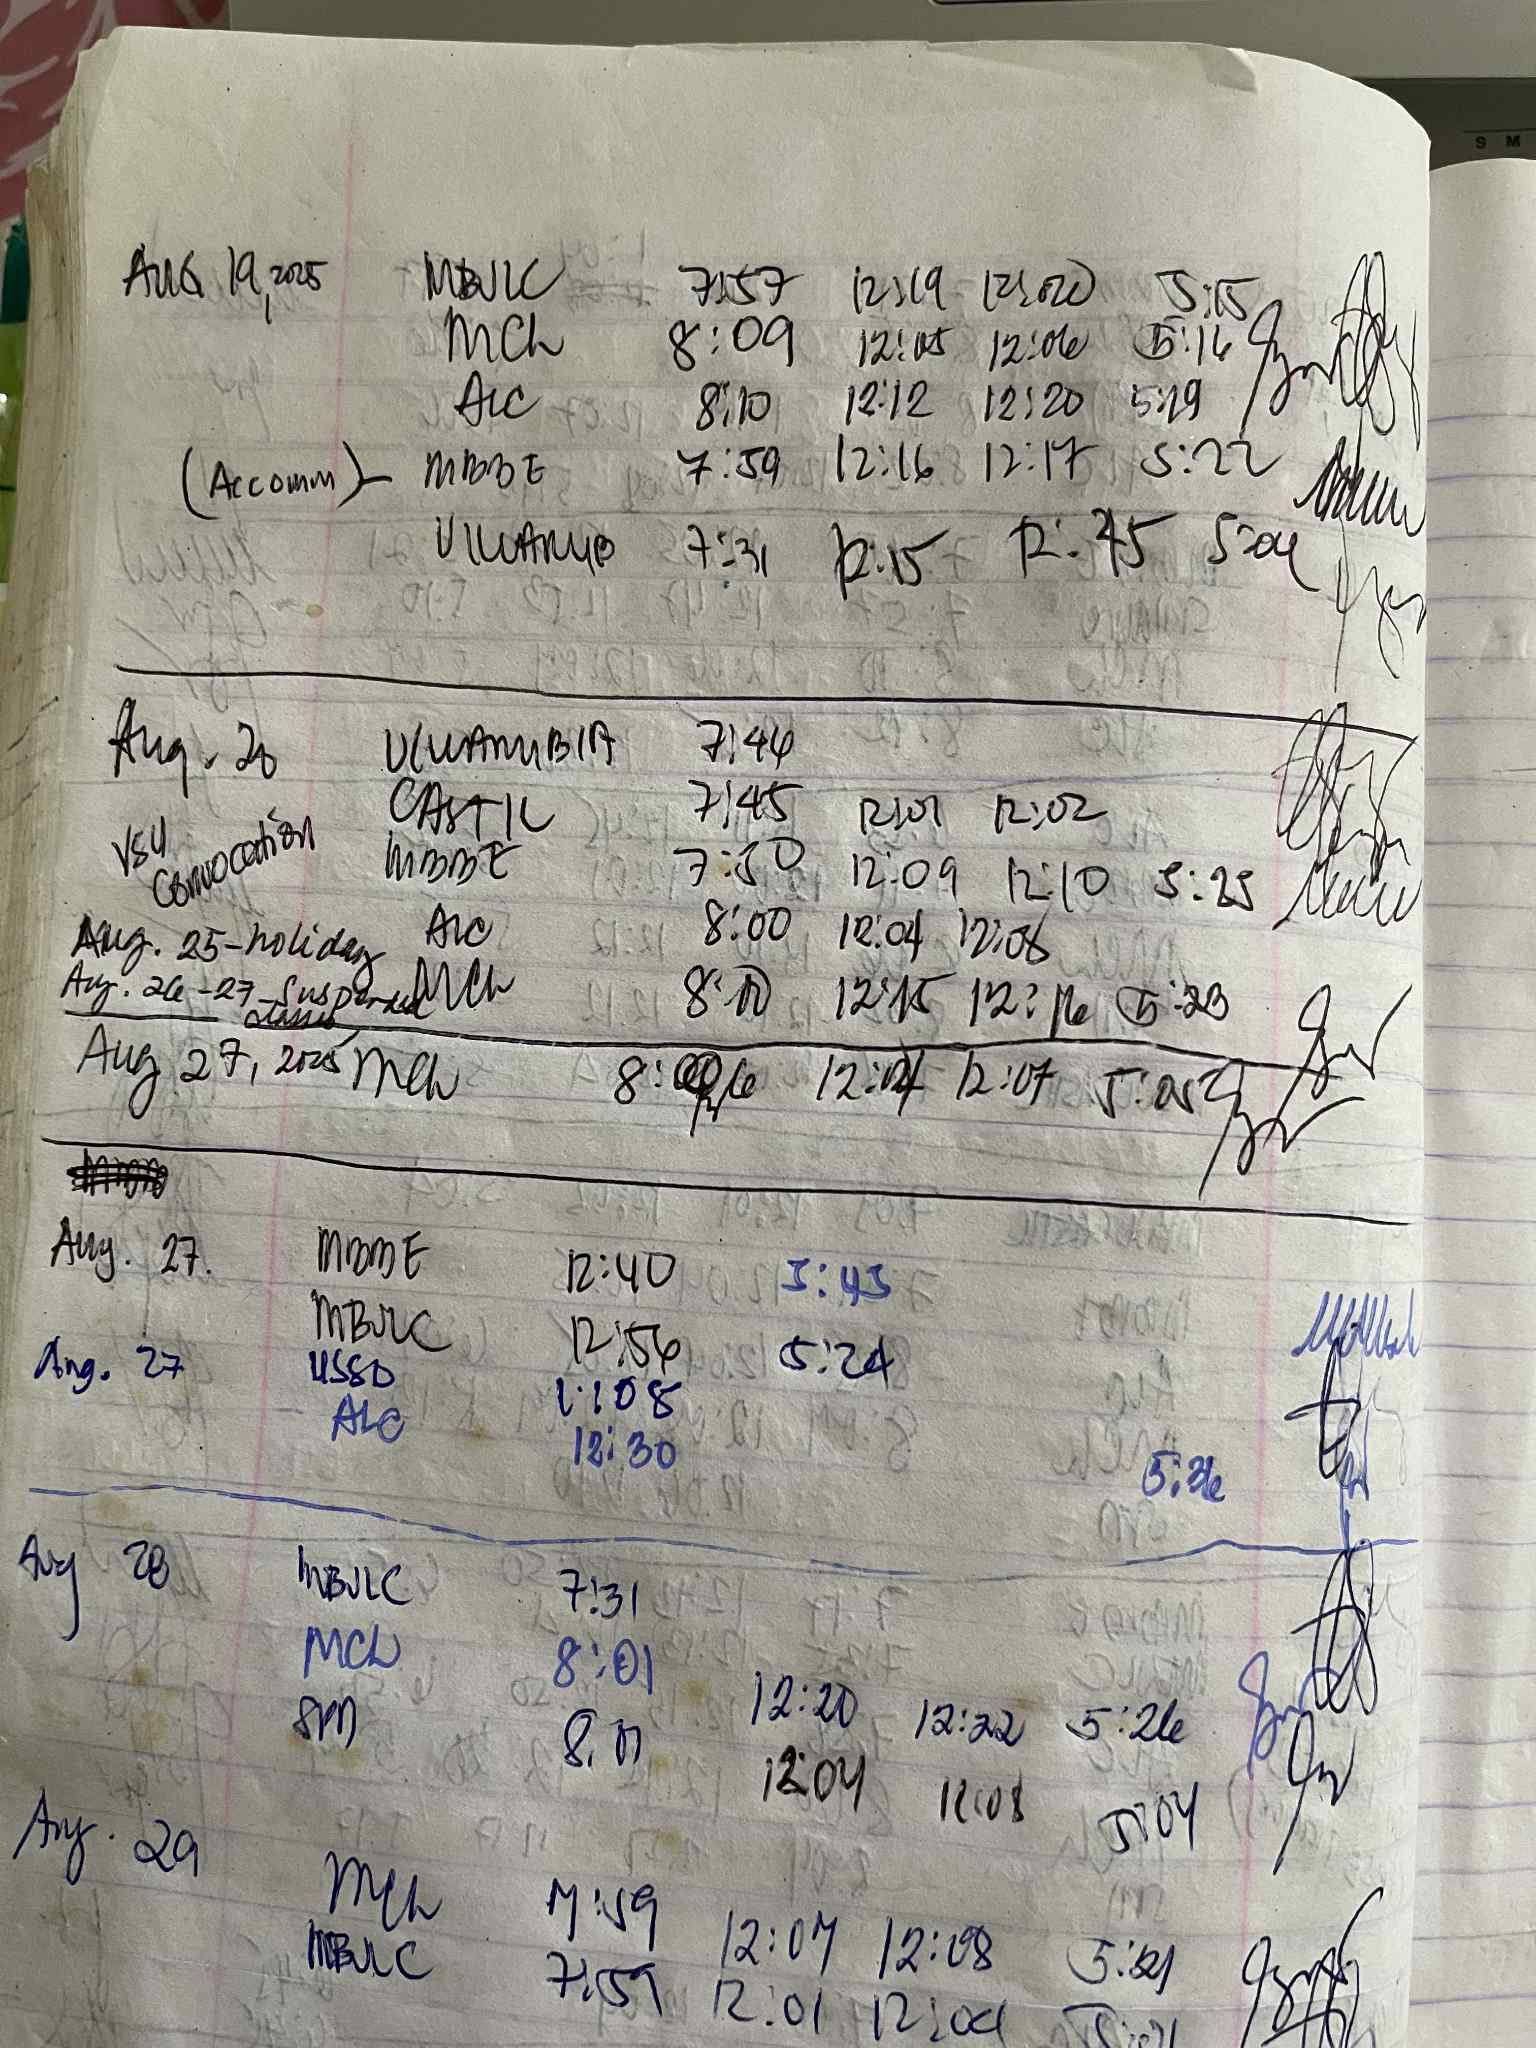 AUG 19, 2025 MBJLC 7:57 12:19 12:20 5:15
MCh 8:09 12:05 12:06 5:16
ALC 8:10 12:12 12:20 5:19
(Accomm) - MBBE 7:59 12:16 12:17 5:22
7:31 12:15 12:45 5:04
Aug. 28 7:44
CASTIL 7:45 12:01 12:02
VSU Convocation MBBE 7:50 12:09 12:10 5:25
Aug. 25-holiday ALC 8:00 12:04 12:08
Aug. 26-27 Suspended classes MCh 12:15 12:16 5:23
Aug 27, 2025 MCh 12:07 5:05
Aug. 27. MBBE 12:40 5:45
MBJLC 12:56 5:24
Aug. 27 USSD 1:08
ALC 12:30 5:26
Aug 28 MBJLC 7:31
MCh 8:01 12:20 12:22 5:26
12:04 12:08 5:04
Aug. 29
MCh 7:59 12:07 12:08
MBJLC 7:59 12:01 12:04